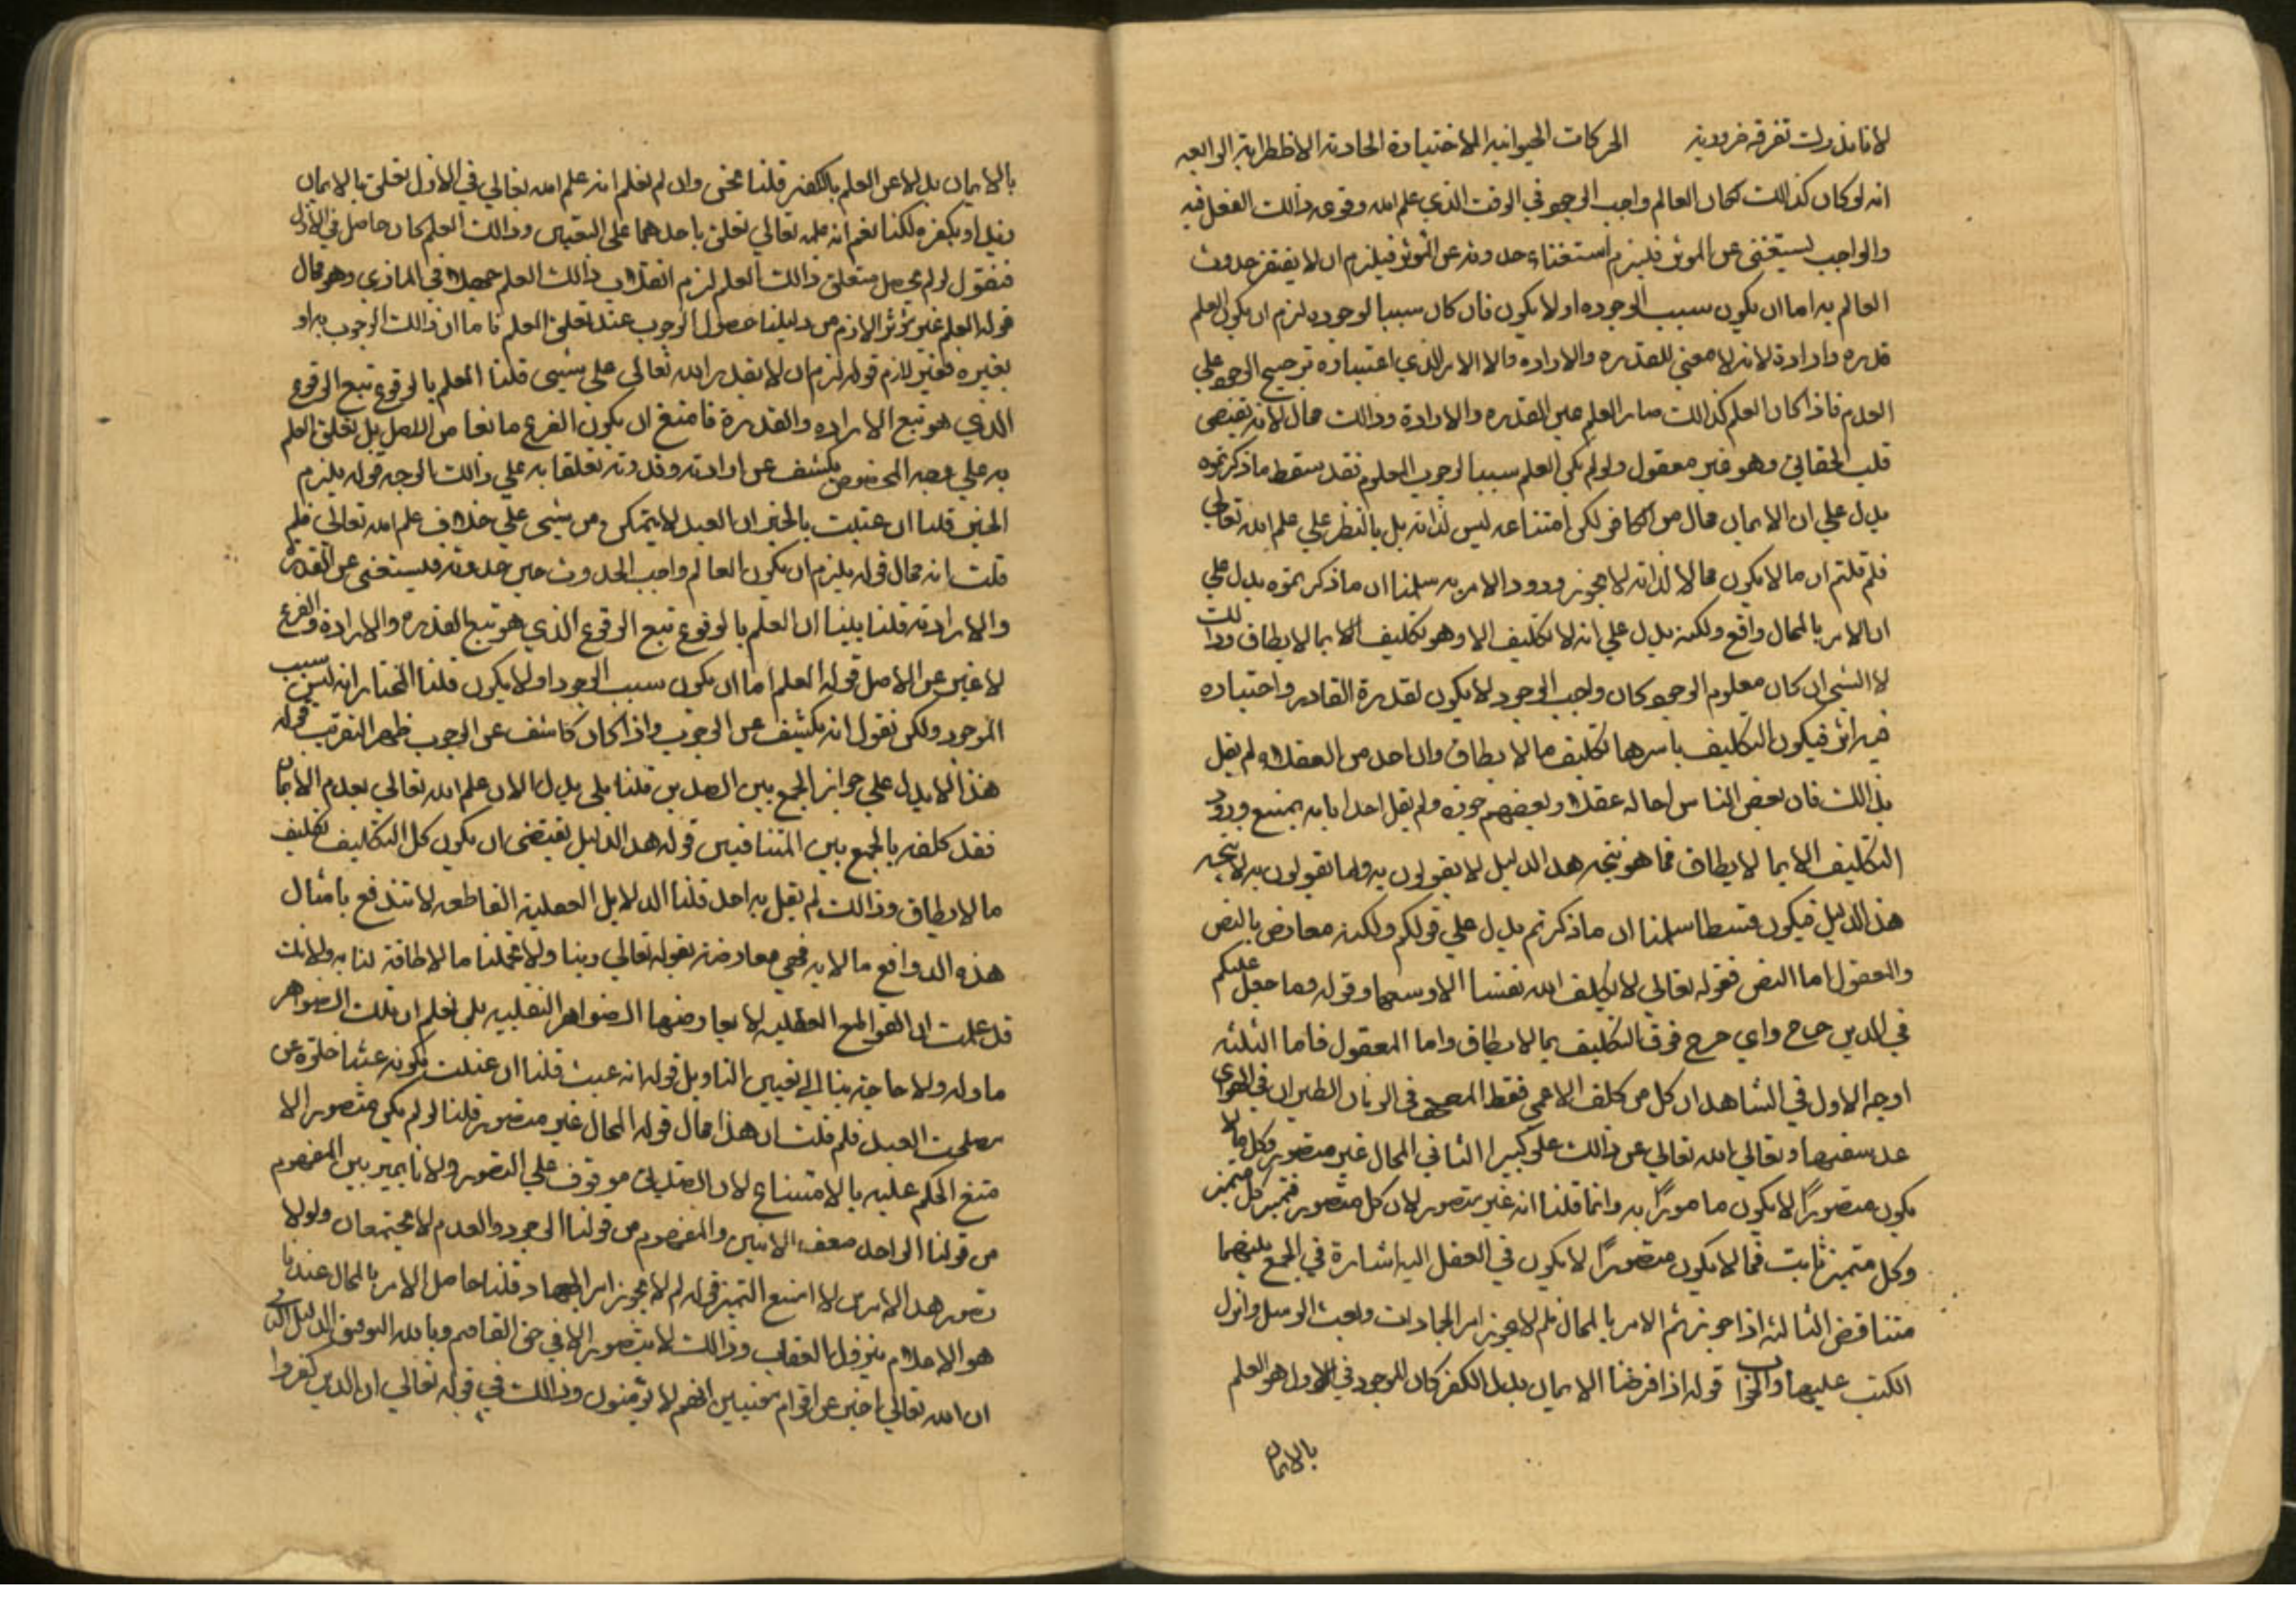 لانا ندرك تفرقه ضرورية الحركات الحيوانيه الاختيارة الحادية الاظطرابة الرابعه
انه لو كان كذالك لكان العالم واجب الوجود في الوقت الذي علم الله وقوعه ذالك الفعل فيه
والواجب يستغني عن الموثر فليزم استغناء حدوثه عن الموثر فيلزم ان لا يفتقر حدوث
العالم به اما ان يكون سبب الوجوده او لا يكون فان كان سببا لوجوده لزم ان يكون العلم
قدره وارادة لانه لا معني للقدره والاراده الا الامر الذي اعتباره ترجيح الوجود علي
العدم فاذا كان العلم كذالك صار العلم عين القدره والارادة وذالك محال لانه يقتضي
قلب الحقائق وهو غير معقول ولو لم يكن العلم سببا لوجوب المعلوم فقد سقط ما ذكرتموه
يدل علي ان الايمان محال من الكافر لكن امتناعه ليس لذاته بل بالنظر علي علم الله تعالي
فلم قلتم ان ما لا يكون محالا لذاته لا يجوز ورود الامر به سلمنا ان ما ذكرتموه يدل علي
ان الامر بالمحال واقع ولكنه يدل علي انه لا تكليف الا وهو تكليف الا بما لا يطاق وذالك
لا الشي ان كان معلوم الوجود كان واجب الوجود لا يكون لقدرة القادر واختياره
فيه اثر فيكون التكاليف باسرها تكليف ما لا يطاق واحد من العقلاء لم يقل
بذالك فان بعض الناس احاله عقلا وبعضهم جوزه ولم يقل احدا بانه يمتنع ورود
التكليف الا بما لا يطاق فما هو نتيجه هذا الدليل لا يقولون به وما تقولون به لا ينتجه
هذا الدليل فيكون سلمنا ان ما ذكرتم يدل علي قولكم ولكنه معارض بالنص
والمعقول اما النص فقوله تعالي لا يكلف الله نفسا الا وسعها وقوله وما جعل عليكم
في الدين حرج واي حرج فوق التكليف بما لا يطاق واما المعقول فاما الثلثه
اوجه الاول في الشاهد ان كل من كلف الاعمي نقط المصحف الطيران في الهوي
عد سفيها وتعالي الله تعالي عن ذالك علو كبيرا الثاني المحال غير متصور وكل ما لا
يكون متصورًا لا يكون مامورًا به وانما قلنا انه غير متصور لان كل متصور متميز كل متميز
وكل متميز ثابت فما لا يكون متصورًا لا يكون في العقل اليه اشارة في الجمع بينهما
متناقض الثالثه اذا جوزتم الامر بالمحال فلم لا يجوز امر الجمادات وبعث الرسل وانزل
الكتب عليها والجواب قوله اذا فرضنا الايمان بدل الكفر كان الموجود في الاول هو العلم
بالايمان
بالايمان بدلا عن العلم بالكفر قلنا نحن وان لم نعلم انه علم الله تعالي في الازل تعلق بالايمان
زيد او بكفره لكنا نعلم انه علمه تعالي تعلق باحدهما علي التعيين وذالك العلم كان حاصل في الازل
فنقول لو لم يحصل متعلق ذالك العلم لزم انقلاب ذالك العلم جهلا في الماضي وهو محال
قوله العلم غير موثر الازم من دليلنا حصول الوجوب عند تعلق العلم فاما ان ذالك الوجوب به او
بغيره فغير لازم قوله لزم ان لا يقدر الله تعالي علي شيي قلنا العلم بالوقوع تبع الوقوع
الذي هو تبع الاراده والقدرة فامتنع ان يكون الفرع مانعا من الاصل بل تعلق العلم
به علي وجه المخصوص يكشف عن ارادته وقدرته تعلقا به علي ذالك الوجه قوله يلزم
الجبر قلنا ان عنيت بالجبر ان العبد لا يتمكن من شيي علي خلاف علم الله تعالي فلم
قلت انه محال قوله يلزم ان يكون العالم واجب الحدوث حين حدوثه فيستغني عن القدرة
والارادة قلنا بينا ان العلم بالوقوع تبع الوقوع الذي هو تبع القدره والارادة والفرع
لا غير عن الاصل قوله العلم اما ان يكون سبب الوجود او لا يكون قلنا المختار انه ليس سبب
الموجود ولكن نقول انه يكشف عن الوجوب واذا كان كاشف عن الوجوب ظهر التقريب قوله
هذا لا يدل علي جواز الجمع بين الضدين قلنا بلي يدل الان علم الله تعالي بعدم الايمان
فقد كلفه بالجمع بين المتنافيين قوله هذا الدليل يقتضي ان يكون كل التكليف تكليف
ما لا يطاق وذالك لم يقل به احد قلنا الدلايل العقلية القاطعه لا تندفع بامثال
هذه الدوافع ما الايه فهي معارضة بقوله تعالي ربنا ولا تحملنا ما لا طاقة لنا به ولانك
قد علمت ان القواطع العقليه لا يعارضها الضواهر النقليه بلي نعلم ان تلك الضواهر
ماوله ولا حاجة بنا الي تعيين التاويل قوله انه عبث قلنا ان عنيت بكونه عبثا خلوه عن
مصلحت العبد فلم قلت ان هذا محال قوله المحال غير متصور قلنا لو لم يكن متصور الا
متنع الحكم عليه بالامتناع لان التصديق موقوف علي التصور ولانا نميز بين المفهوم
من قولنا الواحد نصف الاثنين والمفهوم من قولنا الوجود والعدم لا يجتمعان ولولا
تصور هذا الامرين لا امتنع التميز قوله لم لا يجوز امر الجماد قلنا حاصل الامر بالمحال عندنا
هو الاعلام بنزول العقاب وذالك لا يتصور الا في حق الفاهم وبالله التوفيق الدليل الثاني
ان الله تعالي اخبر عن اقوام معينين انهم لا يؤمنون وذالك في قوله تعالي ان الذين كفروا